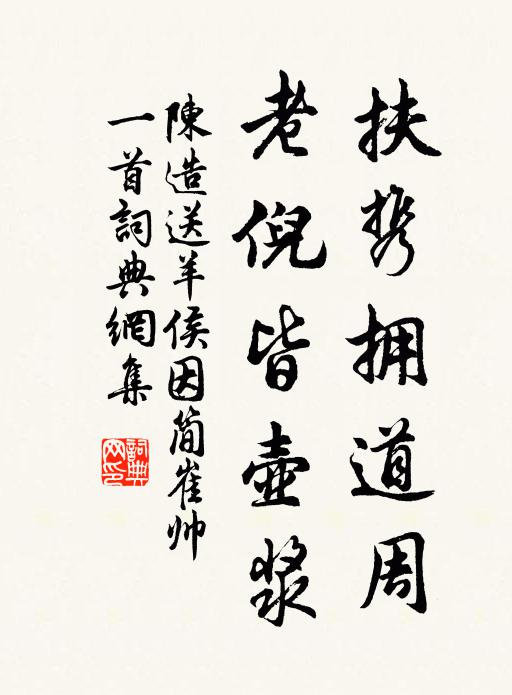 扶携拥道周
老倪皆壶浆
陳造送羊侯因简崔帅
一首詞典網集
詞典网印